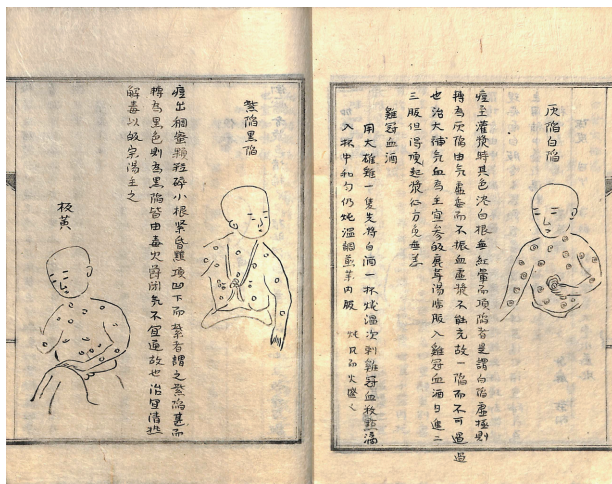 灰陷白陷
痘至灌漿時其色淡白根無紅暈而頂陷者是謂白陷虛極則
轉為灰陷由氣虛毒而不振血虛漿不能充故一陷而不可過過
也治大補氣血為主宜參歸鹿茸湯臨服入雞冠血酒日進二
三服但得頂起漿行方免無恙
雞冠血酒
用大雄雞一隻先將白酒一杯炖溫次刺雞冠血數點滴
入杯中和勻仍炖溫調藥內服
紫陷黑陷
痘出稠密顆粒碎小根緊昏黯頂凹下而紫者謂之紫陷甚而
轉為黑色則為黑陷皆由毒火鬱閉氣不宣通故也治宜清熱
解毒以歸宗湯主之
板黃